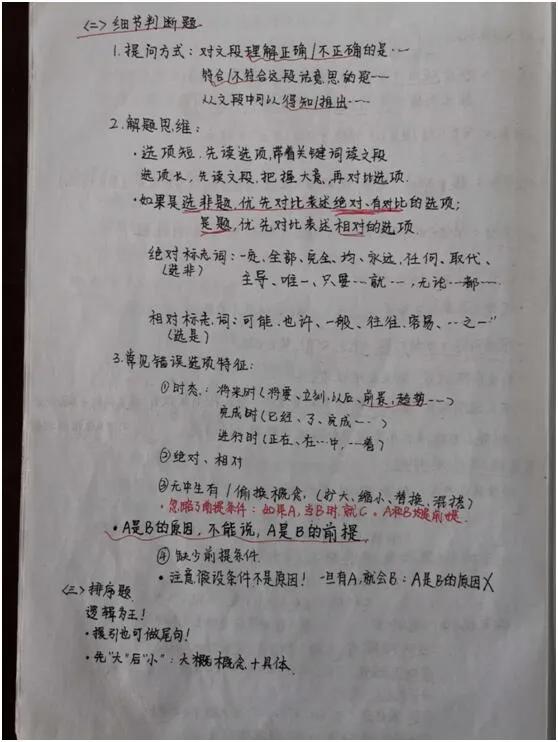 <二> 细节判断题
1.提问方式：对文段理解正确/不正确的是……
符合/不符合这段话意思的是……
从文段中可以得知/推出……
2.解题思维：
·选项短，先读选项，带着关键词读文段
选项长，先读文段，把握大意，再对比选项.
·如果是选非题，优先对比表述绝对、有对比的选项；
是题，优先对比表述相对的选项.
绝对标志词：一定、全部、完全、均、永远、任何、取代、
(选非)
主导、唯一、只要……就……，无论……都……
相对标志词：可能、也许、一般、往往、容易、……之一"
(选是)
3.常见错误选项特征：
①时态：将来时(将要、立刻、以后、前景、趋势……)
完成时(已经、了、完成……)
进行时(正在、在…中、…着)
②绝对、相对
③无中生有/偷换概念，(扩大、缩小、替换、混搭)
·忽略了前提条件：如果A，当B时，就C。A和B均是前提.
·A是B的原因，不能说，A是B的前提
④缺少前提条件.
·注意假设条件不是原因！一旦有A，就会B：A是B的原因X
<三>排序题
逻辑为王！
·援引也可做尾句！
·先"大"后"小"：大概概念+具体.